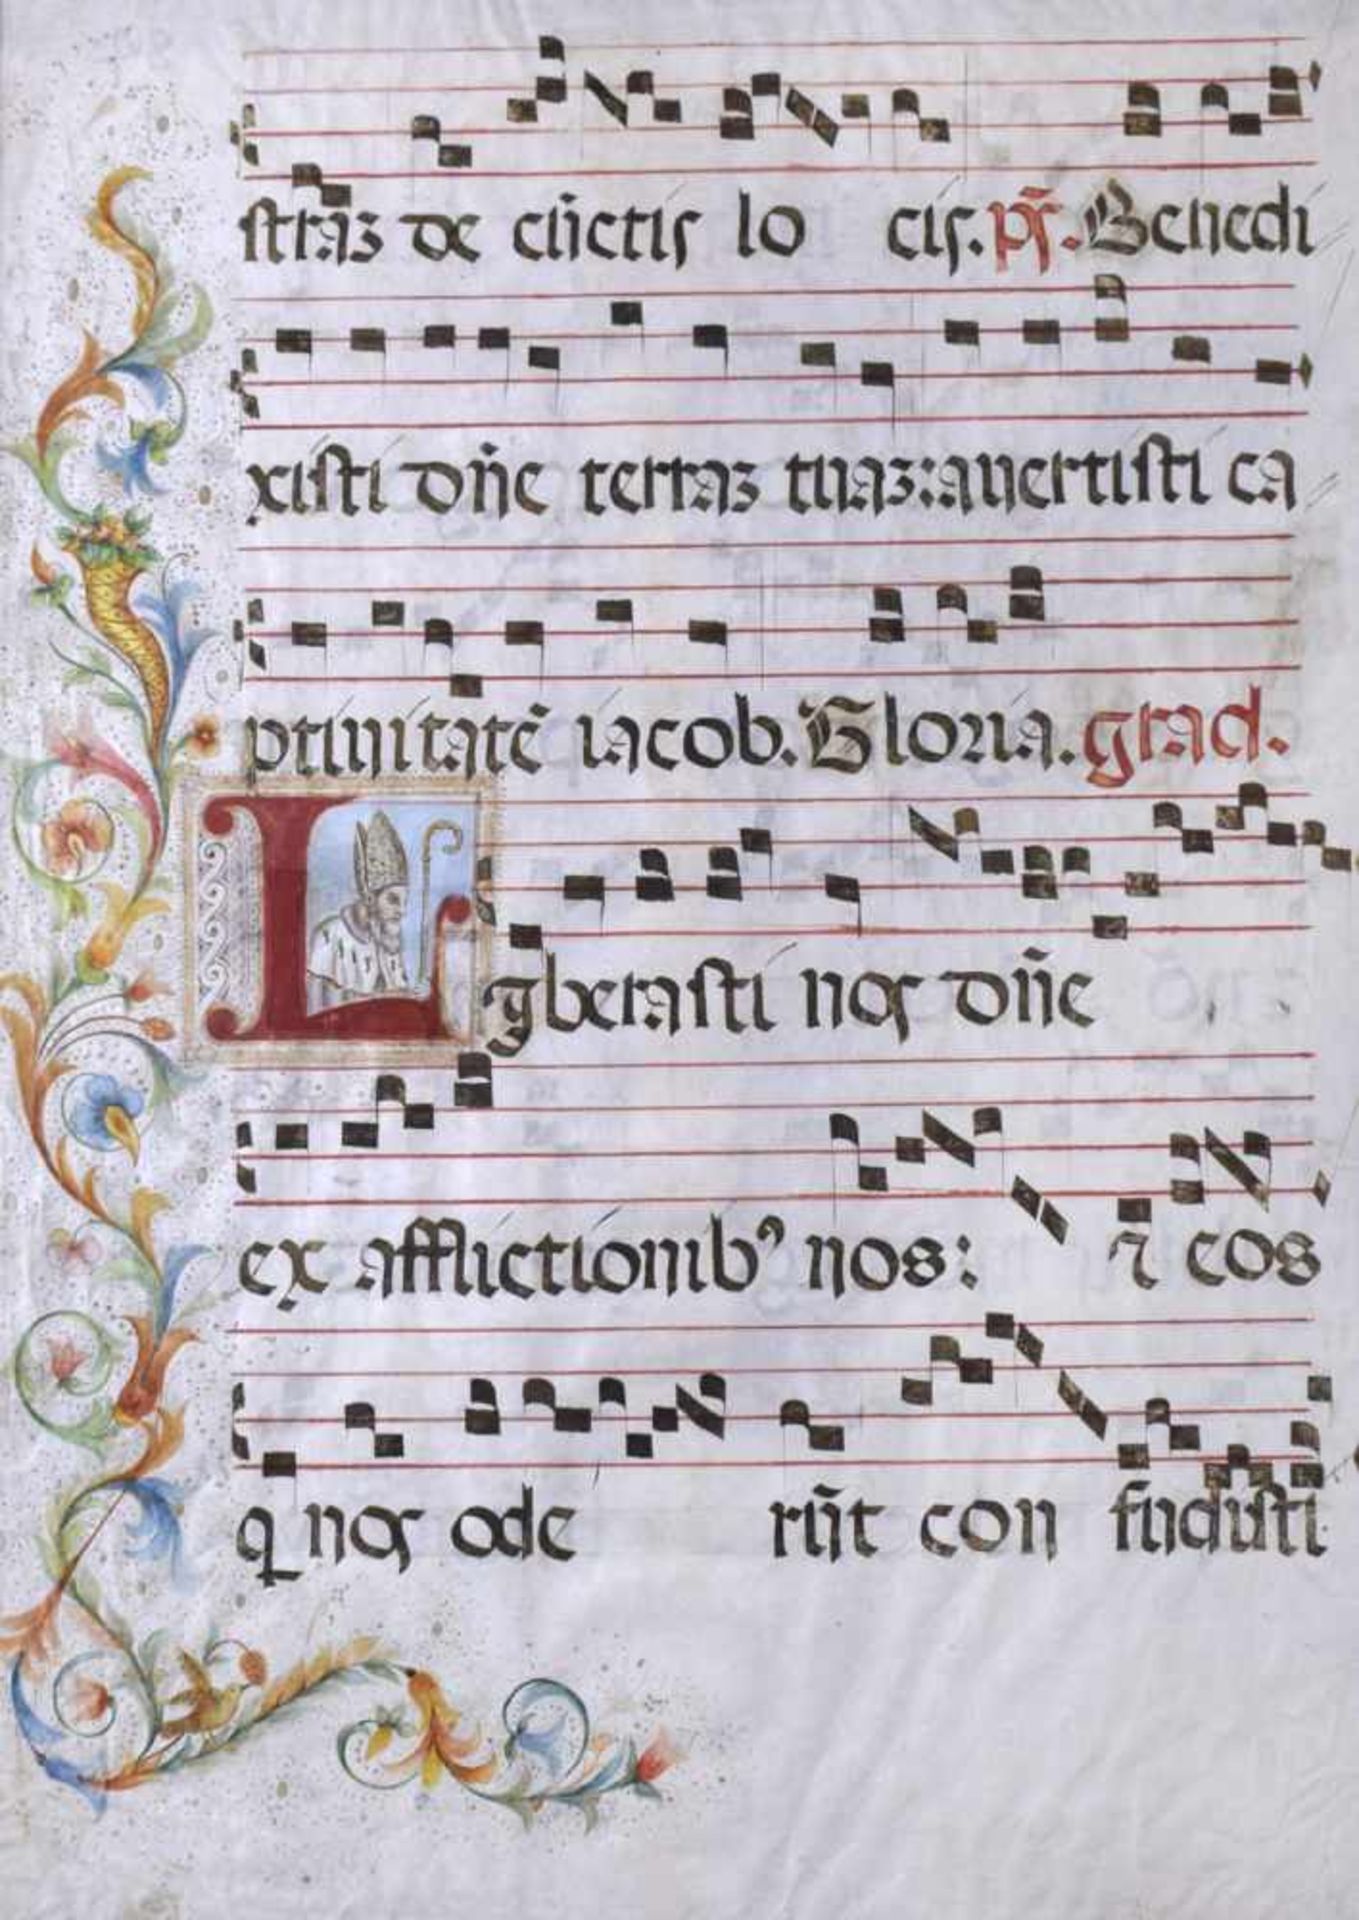 straʒ de cūctis lo cis. ps̄. Benedi
xisti dn̄e terraʒ tuaʒ: auertisti ca
ptiuitatē iacob. Gloria. grad.
L iberasti nos dn̄e
ex afflictionibꝰ nos: ⁊ eos
q nos ode rūt con fudisti